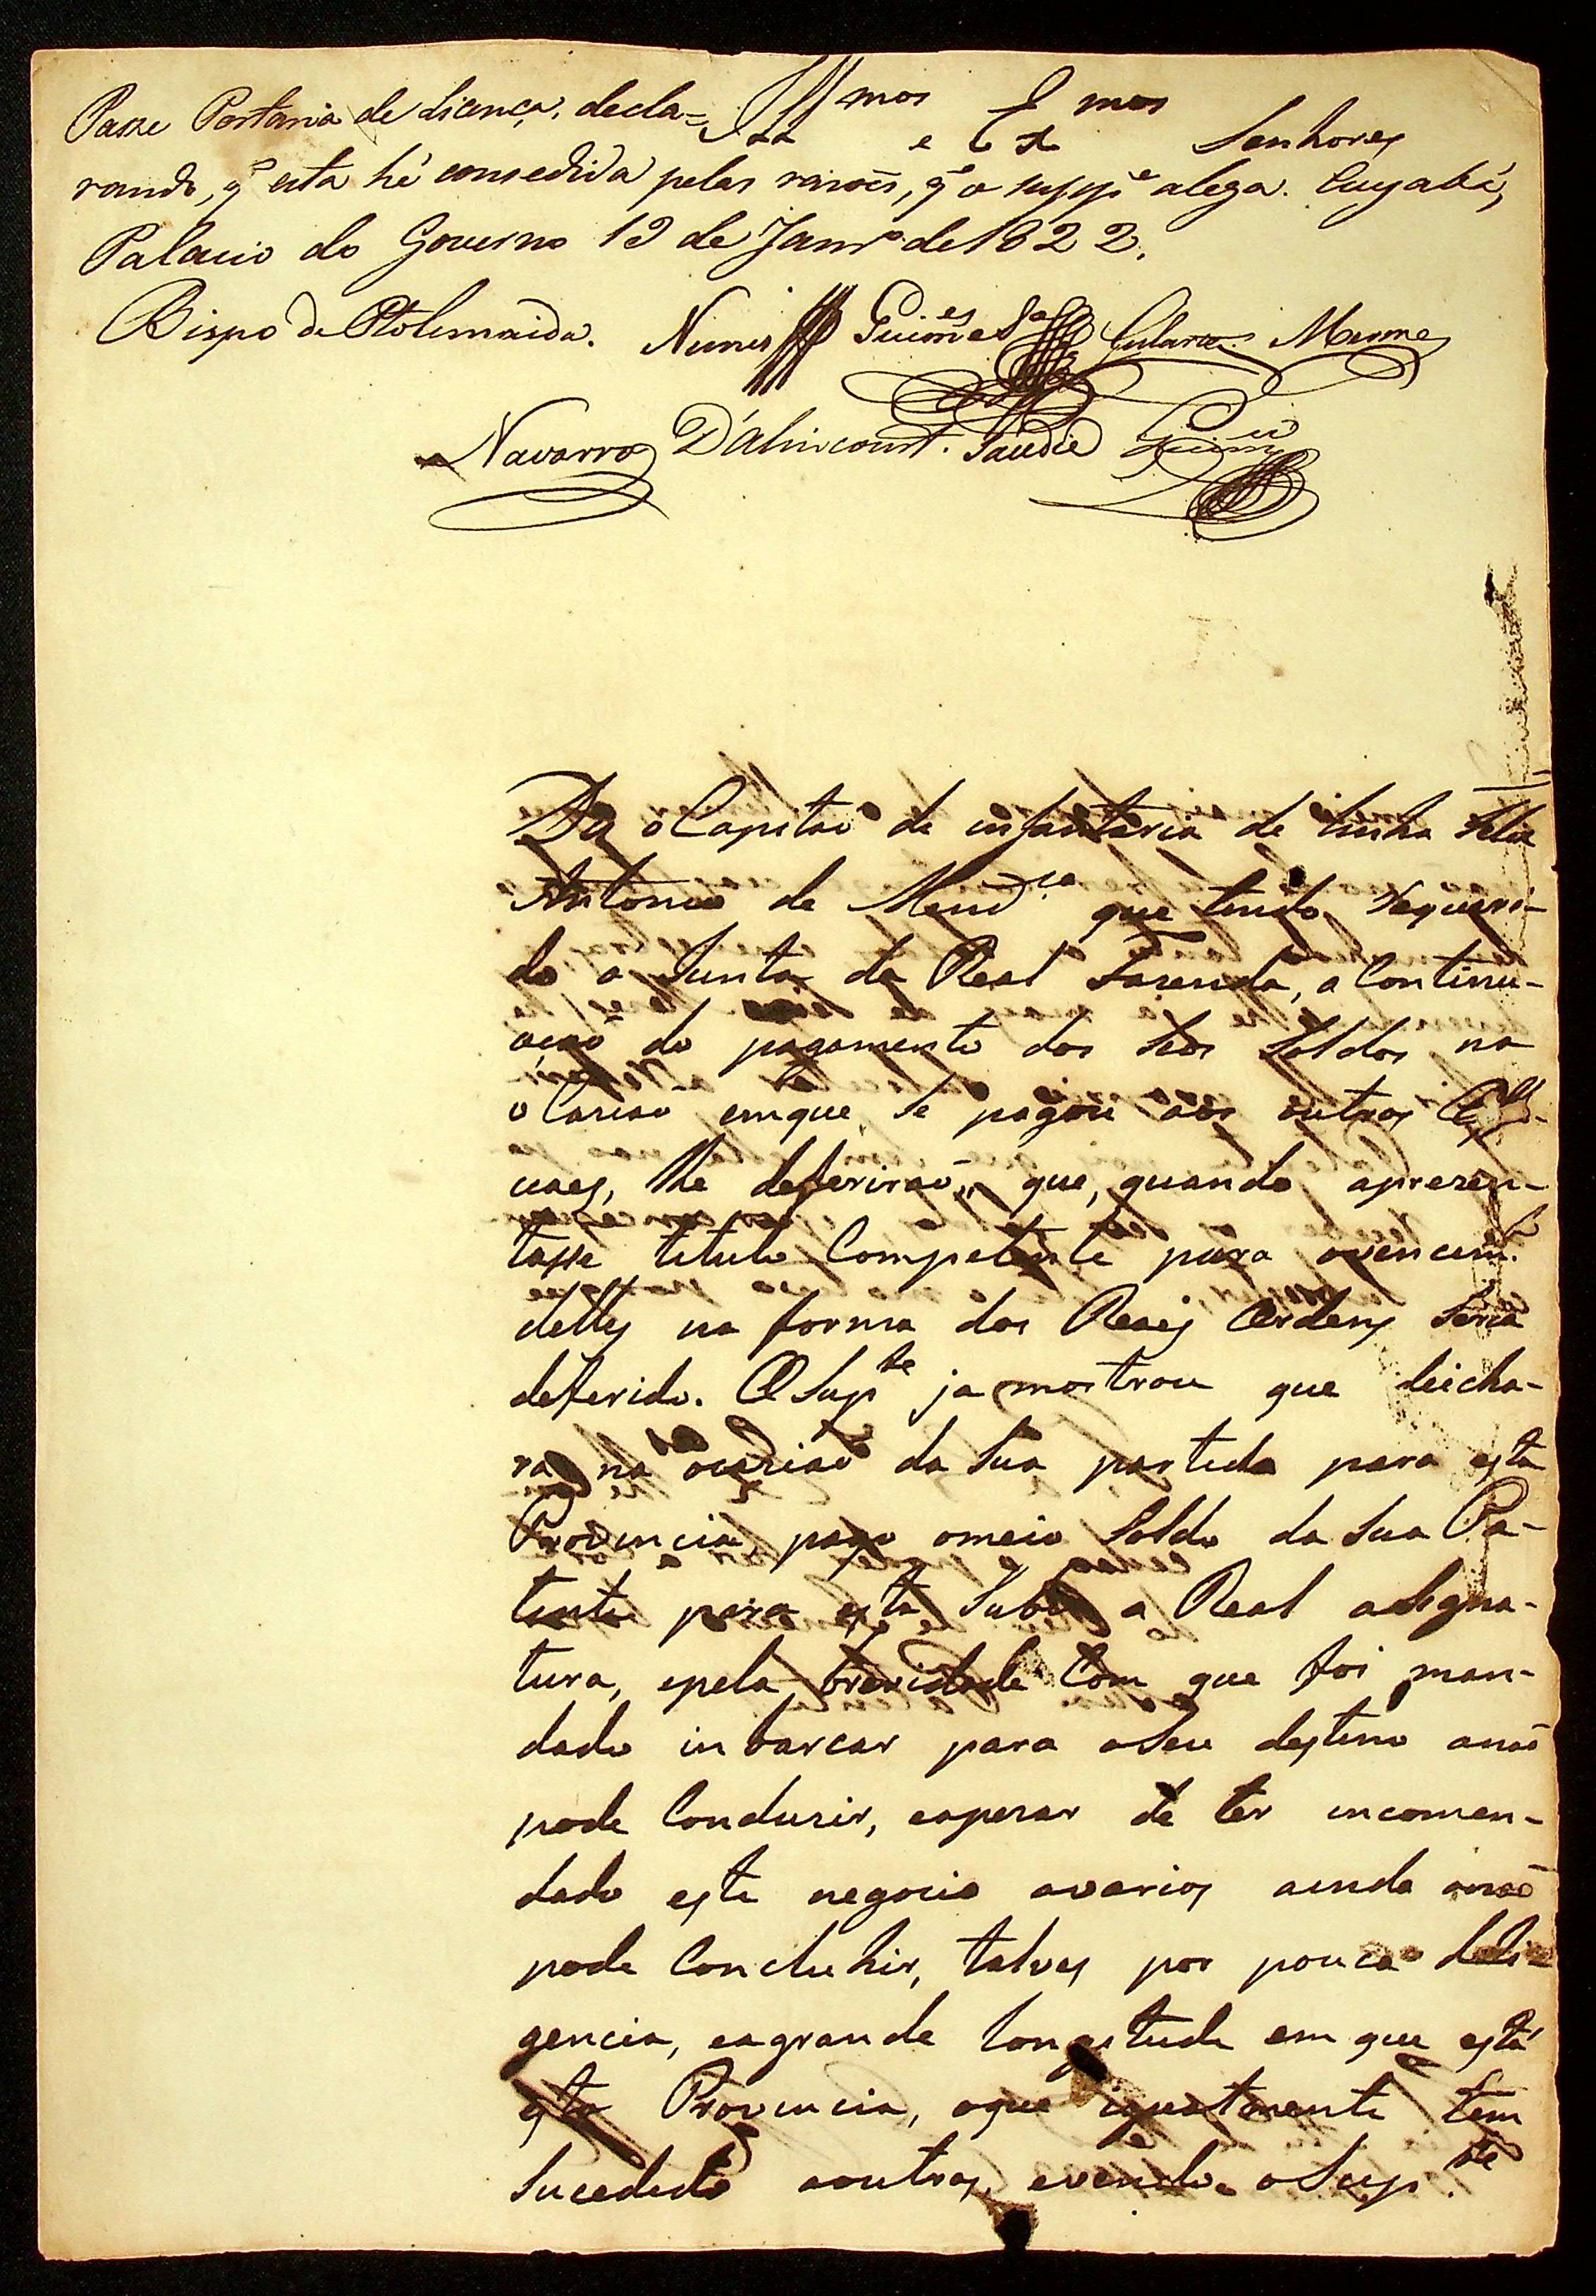 Illmos e Exmos Senhores
Passe Portaria de Licença, decla=
rando, q̃ esta hé consedida pelas rasoẽs, q̃ o suppe alega. Cuyabá,
Palacio do Governo 19 de Janro de 1822.
Bispo de Ptolemaida. Nunes Guimes Sa Mesme
Navarro D'Alincourt. Jaudie
Diz o Capitaõ de infantaria de linha Feliz
Antonio de Mendca que tendo requeri-
do a Junta da Real Fazenda, a continu-
açaõ do pagamento dos seos soldos na
ocasiaõ emque se pagou aos outros Offi-
ciaes, lhe deferiraõ, que, quando apresen-
tasse titulo competente para ovencimto
delles na forma das Reaes Ordens seria
defferido. O Supte ja mostrou que deicha-
ra na ocasiaõ da sua partida para esta
Provincia, pago omeio soldo da sua Pa-
tente para esta subir a Real asigna-
tura, epela brevidade com que foi man-
dado inbarcar para oseu destino anaõ
pode condusir, eapesar de ter incomen-
dado este negocio avarios ainda onaõ
pode concluhir, talves por pouca deli-
gencia, eagrande longitude em que está
esta Provincia, oque igualmente tem
sucedido aoutros, evendo o Supte